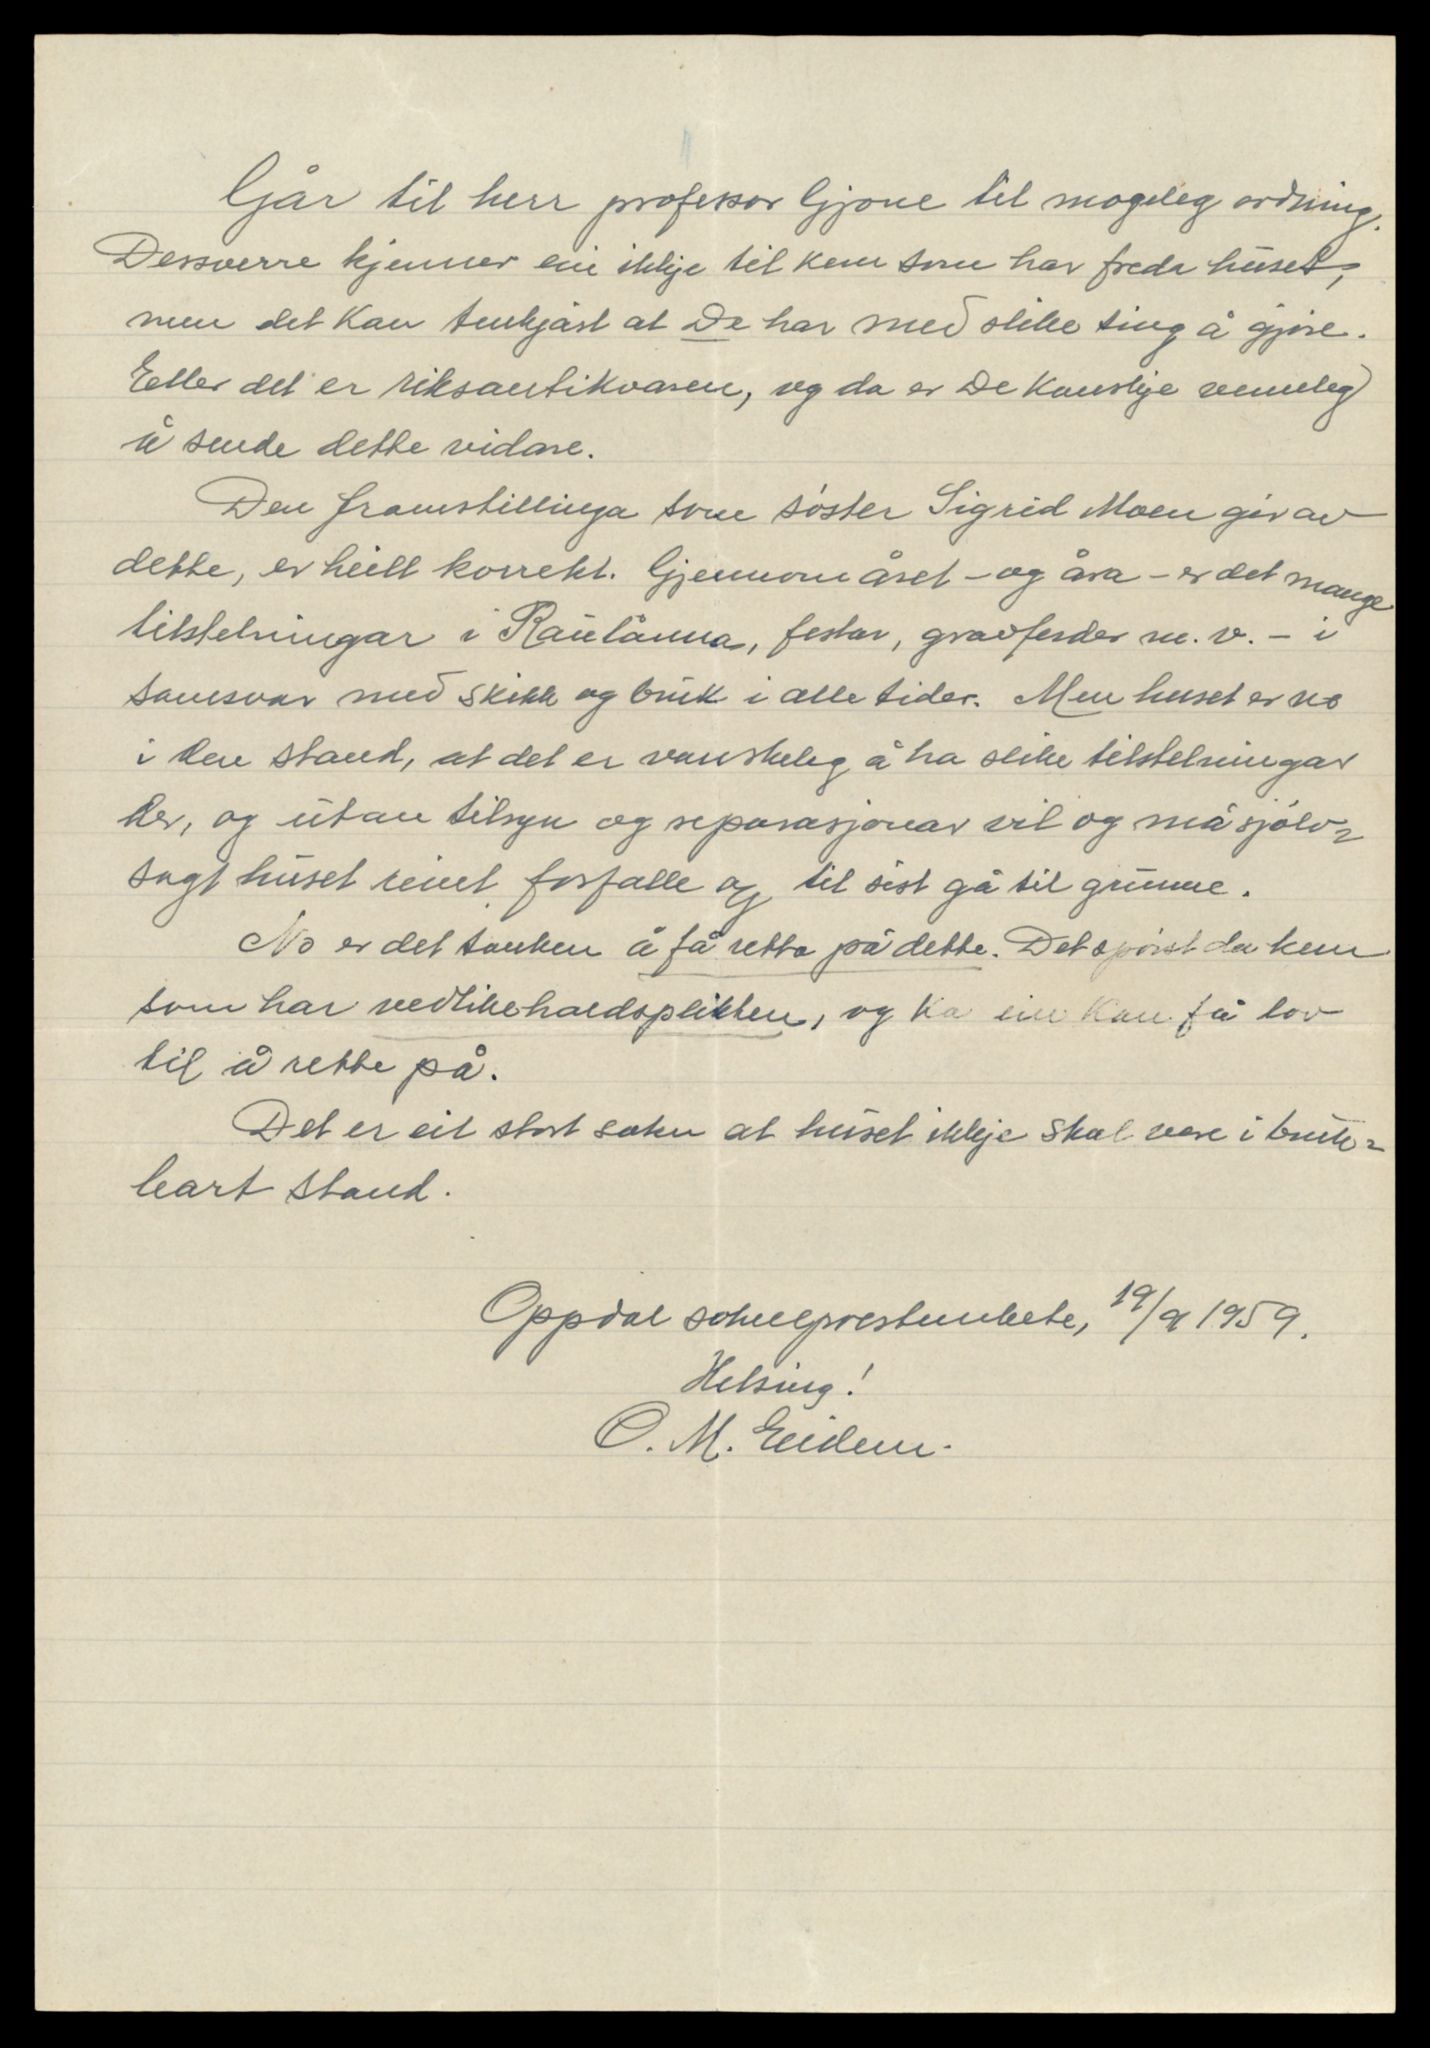 Går til herr professor Gjone til mogeleg ordning.
Dessverre kjenner ein ikkje til kem som har freda huset,
men det kan tenkjast at De har med slike ting å gjøre.
Eller det er riksantikvaren, og da er De kanskje venneleg
å sende dette vidare.
Den framstillinga som søster Sigrid Moen gir av
dette, er heilt korrekt. Gjennom året - og åra - er det mange
tilstelningar i Raulånna, festar, gravferder m. v. - i
samsvar med skikk og bruk i alle tider. Men huset er no
i den stand, at det er vanskeleg å ha slike tilstelningar
der, og utan tilsyn og reparasjonar vil og må sjølv=
sagt huset reint forfalle og til sist gå til grunne.
No er det tanken å få retta på dette. Det spørst da kem
som har vedlikehaldsplikten, og ka ein kan få lov
til å rette på.
Det er eit stort sakn at huset ikkje skal vere i bruk=
bart stand.
Oppdal sokneprestembete, 19/9 1959.
Helsing!
O. M. Eidem.